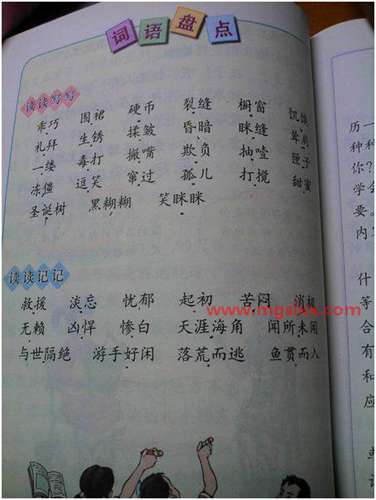 词语盘点
读读写写
乖巧 围裙 硬币 裂缝 橱窗 饥饿
礼拜 生锈 揉皱 昏暗 眯缝 耸肩
一缕 毒打 撅嘴 欺负 抽噎
冻僵 逗笑 窜过 孤儿 打搅 甜蜜
圣诞树 黑糊糊 笑眯眯
读读记记
救援 淡忘 忧郁 起初 苦闷 消极
无赖 凶悍 惨白 天涯海角 闻所未闻
与世隔绝 游手好闲 落荒而逃 鱼贯而入
历一
种种
你?
学会
要。
什
等
合
有
和
应